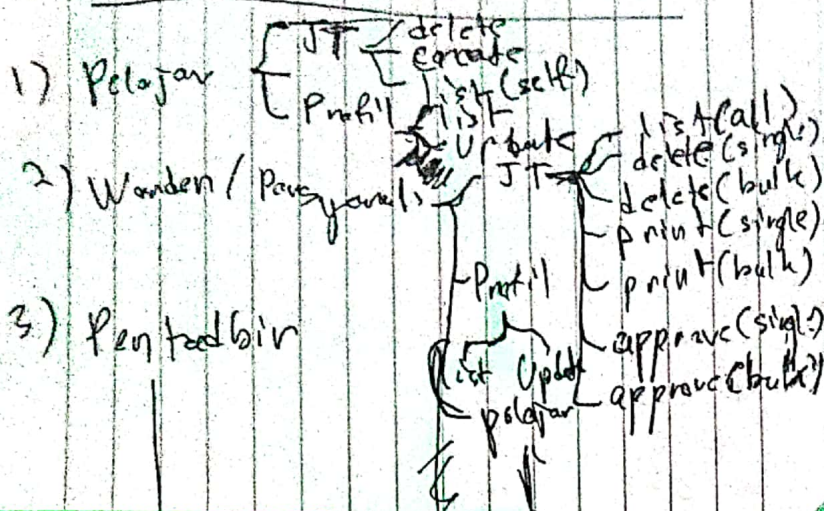 1) Pelajar
JT
delete
create
list (self)
Profil
list
Update
2) Warden / Pensyarah
JT
list (all)
delete (single)
delete (bulk)
print (single)
print (bulk)
approve (single)
approve (bulk)
Profil
list Update
pelajar
3) Pentadbir